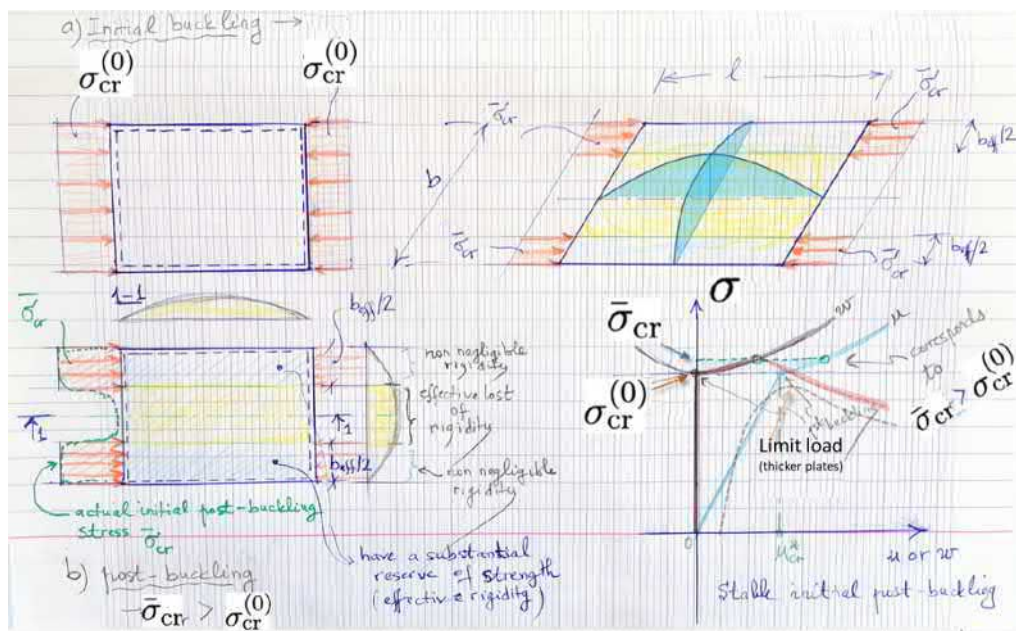 a) Initial buckling →
σ_cr^(0)
σ_cr^(0)
l
σ̄_cr
σ̄_cr
b_eff/2
b
σ̄_cr
σ̄_cr
b_eff/2
1-1
σ̄_cr
b_eff/2
non negligible
rigidity
effective lost
of
rigidity
1
1
b_eff/2
non negligible
rigidity
actual initial post-buckling
stress σ̄_cr
have a substantial
reserve of strength
(effective rigidity)
b) post-buckling
→ σ̄_cr > σ_cr^(0)
σ
σ̄_cr
w
u
σ_cr^(0)
corresponds
to
σ̄_cr > σ_cr^(0)
Limit load
(thicker plates)
0
u*_cr
u or w
Stable initial post-buckling